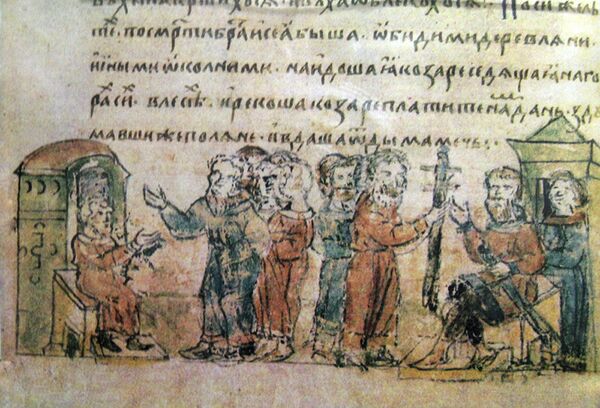 По си же лѣ
те . по смр҃ти бра҃и сеꙗ быша ѡбидими деревлѧни
иными ѡколними . наидоша ꙗ козаре седѧщаꙗ на го
ра си в лесѣ . и рекоша козаре платите на дань . здꙋ
мавши же полѧне . и вдаша ѿ дыма мечь :